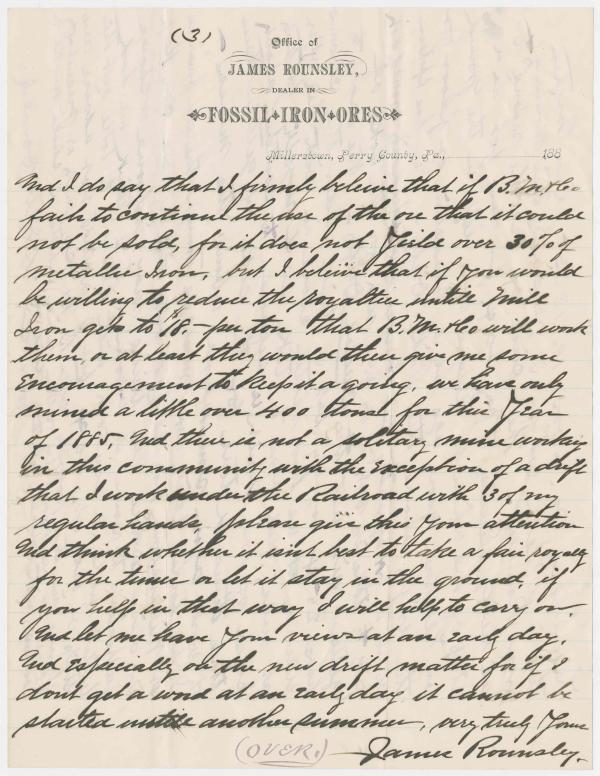 (3)
Office of
JAMES ROUNSLEY,
DEALER IN
FOSSIL IRON ORES
Millerstown, Perry County, Pa., 188
And I do say that I firmly beleive that if B. M. & Co
fails to continue the use of the ore that it could
not be sold, for it does not Yield over 30% of
metallic Iron, but I beleive that if you would
be willing to reduce the royalties untill Mill
Iron gets to 18.- per ton that B. M. & Co will work
them, or at least they would then give me some
Encouragement to keep it a going, we have only
mined a little over 400 tons for this Year
of 1885, And there is not a solitary mine working
in this community with the Exception of a drift
that I work under the Railroad with 3 of my
regular hands, please give this Your attention
And think whether it isnt best to take a fair royalty
for the times or let it stay in the ground, if
you help in that way I will help to carry on.
And let me have Your views at an Early day,
And Especially on the new drift matter for if I
dont get a word at an Early day it cannot be
started untill another summer, very truly Yours
(OVER.) James Rounsley.-